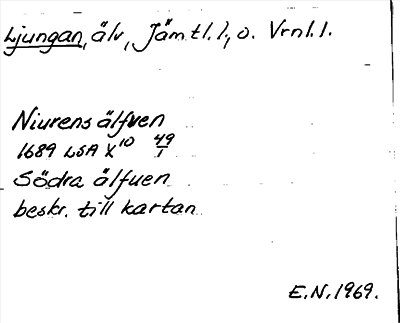 Ljungan, älv, Jämtl. l, o. Vrnl. l.
Niurens älfven
1689 LSA X¹⁰ 49/1
Södra älfuen
beskr. till kartan
E.N. 1969.